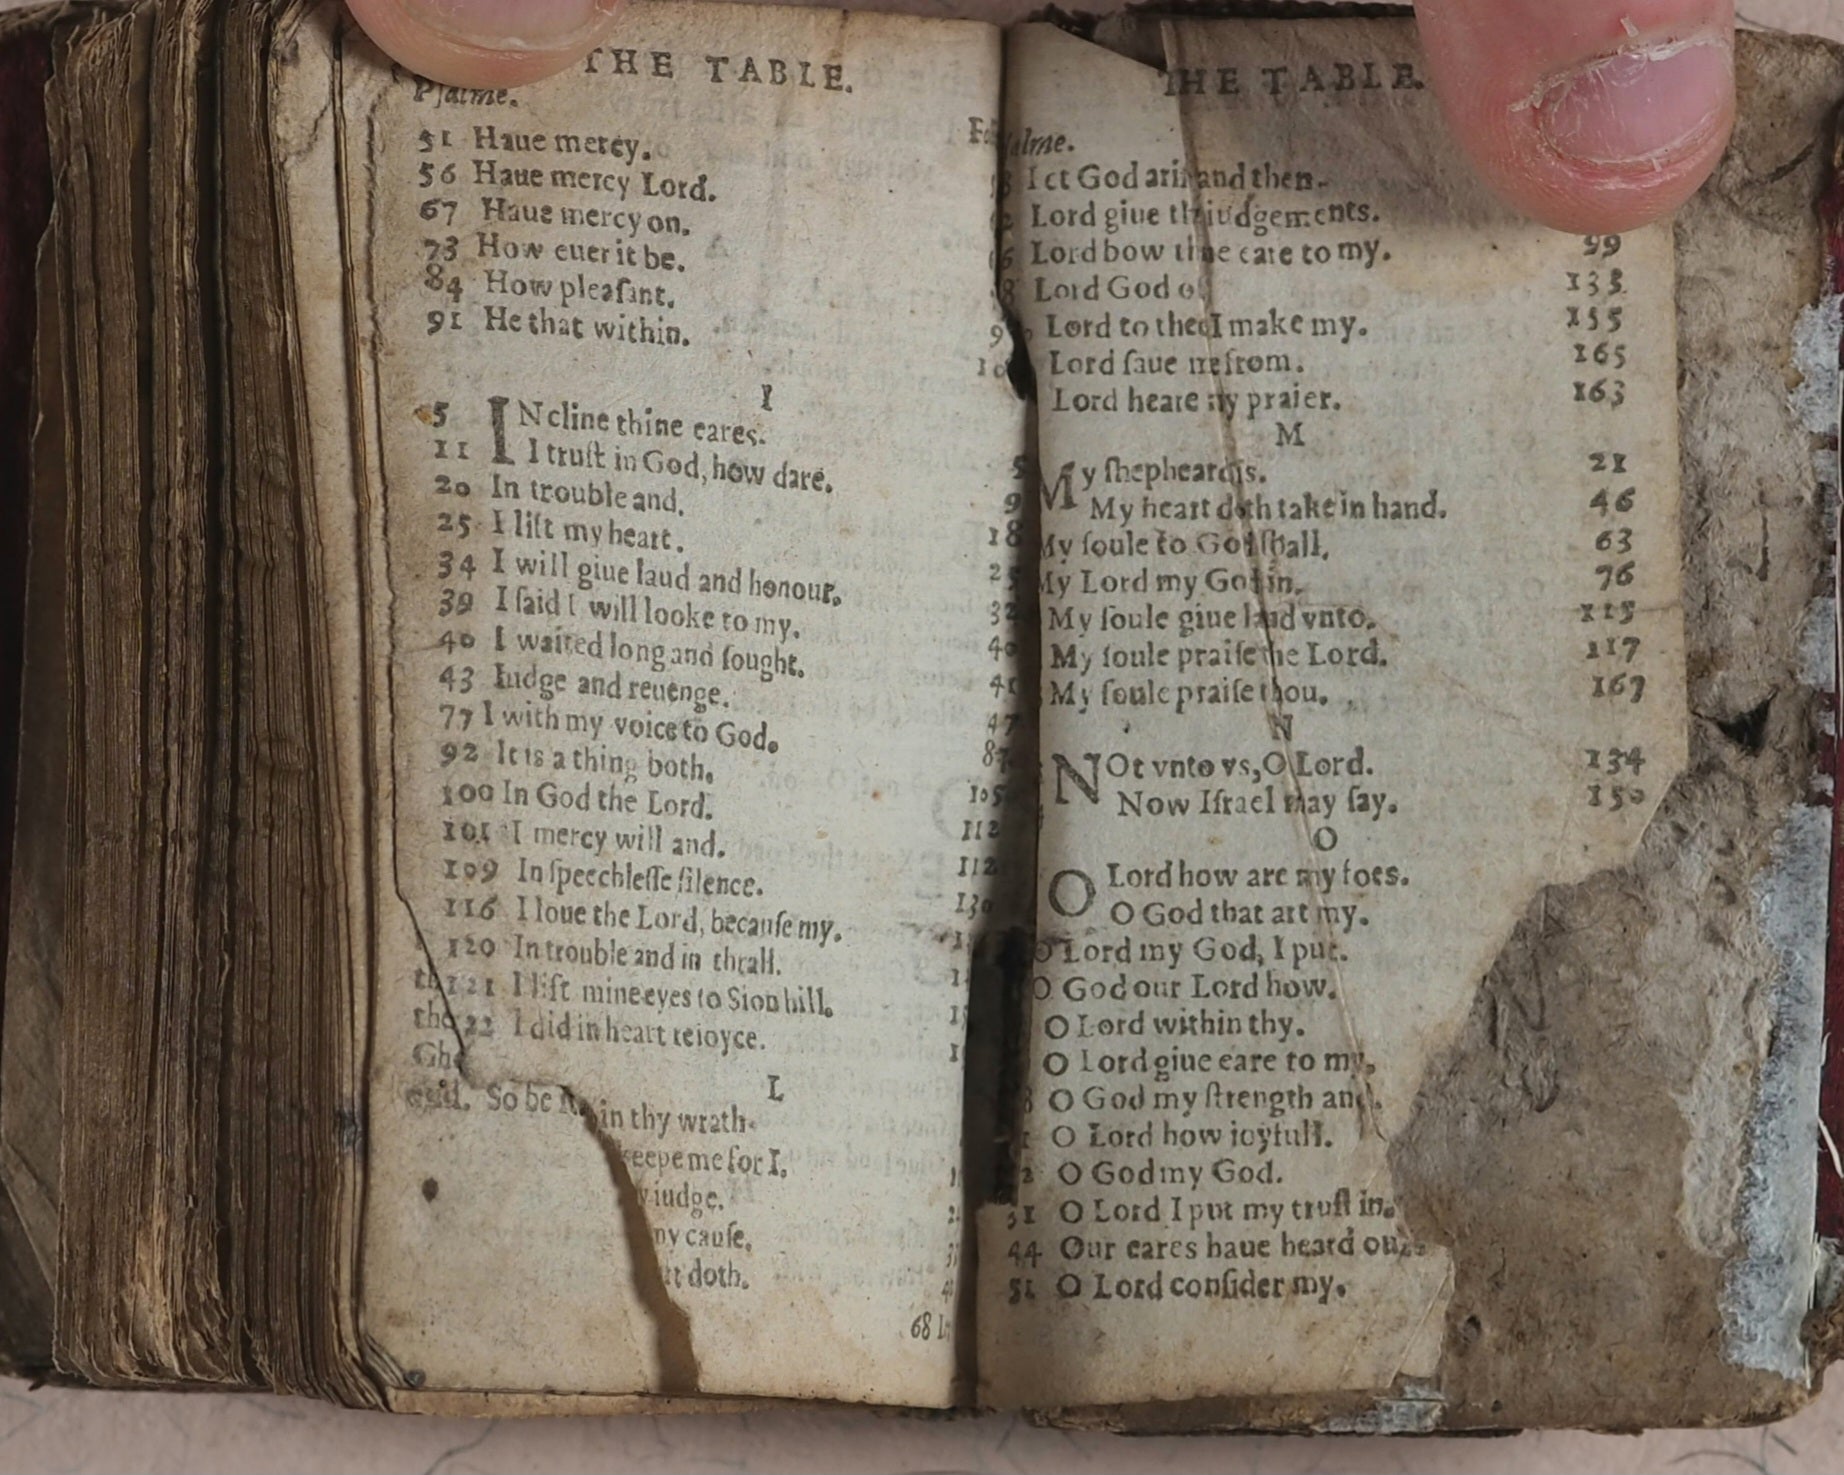 THE TABLE.
Psalme.
51 Haue mercy.
56 Haue mercy Lord.
67 Haue mercy on.
73 How euer it be.
84 How pleaſant.
91 He that within.
I
5 INcline thine eares. 5
11 I truſt in God, how dare. 9
20 In trouble and. 18
25 I lift my heart. 25
34 I will giue laud and honour. 32
39 I ſaid I will looke to my. 40
40 I waited long and ſought. 41
43 Iudge and reuenge. 47
77 I with my voice to God. 87
92 It is a thing both. 105
100 In God the Lord. 112
101 I mercy will and. 112
109 In ſpeechleſſe ſilence. 130
116 I loue the Lord, becauſe my.
120 In trouble and in thrall.
121 I lift mine eyes to Sion hill.
22 I did in heart reioyce.
L
So be in thy wrath.
keepe me for I.
iudge.
my cauſe.
doth.
68
THE TABLE.
Let God ariſe and then.
Lord giue thy iudgements.
Lord bow thine eare to my. 99
Lord God 138
Lord to thee I make my. 155
Lord ſaue me from. 165
Lord heare my praier. 163
M
My ſhepheard is. 21
My heart doth take in hand. 46
My ſoule to God ſhall. 63
My Lord my God in. 76
My ſoule giue laud vnto. 115
My ſoule praiſe the Lord. 117
My ſoule praiſe thou. 167
N
NOt vnto vs, O Lord. 134
Now Iſrael may ſay. 150
O
O Lord how are my foes.
O God that art my.
O Lord my God, I put.
O God our Lord how.
O Lord within thy.
O Lord giue eare to my.
O God my ſtrength and.
O Lord how ioyfull.
O God my God.
31 O Lord I put my truſt in.
44 Our eares haue heard our
51 O Lord conſider my.